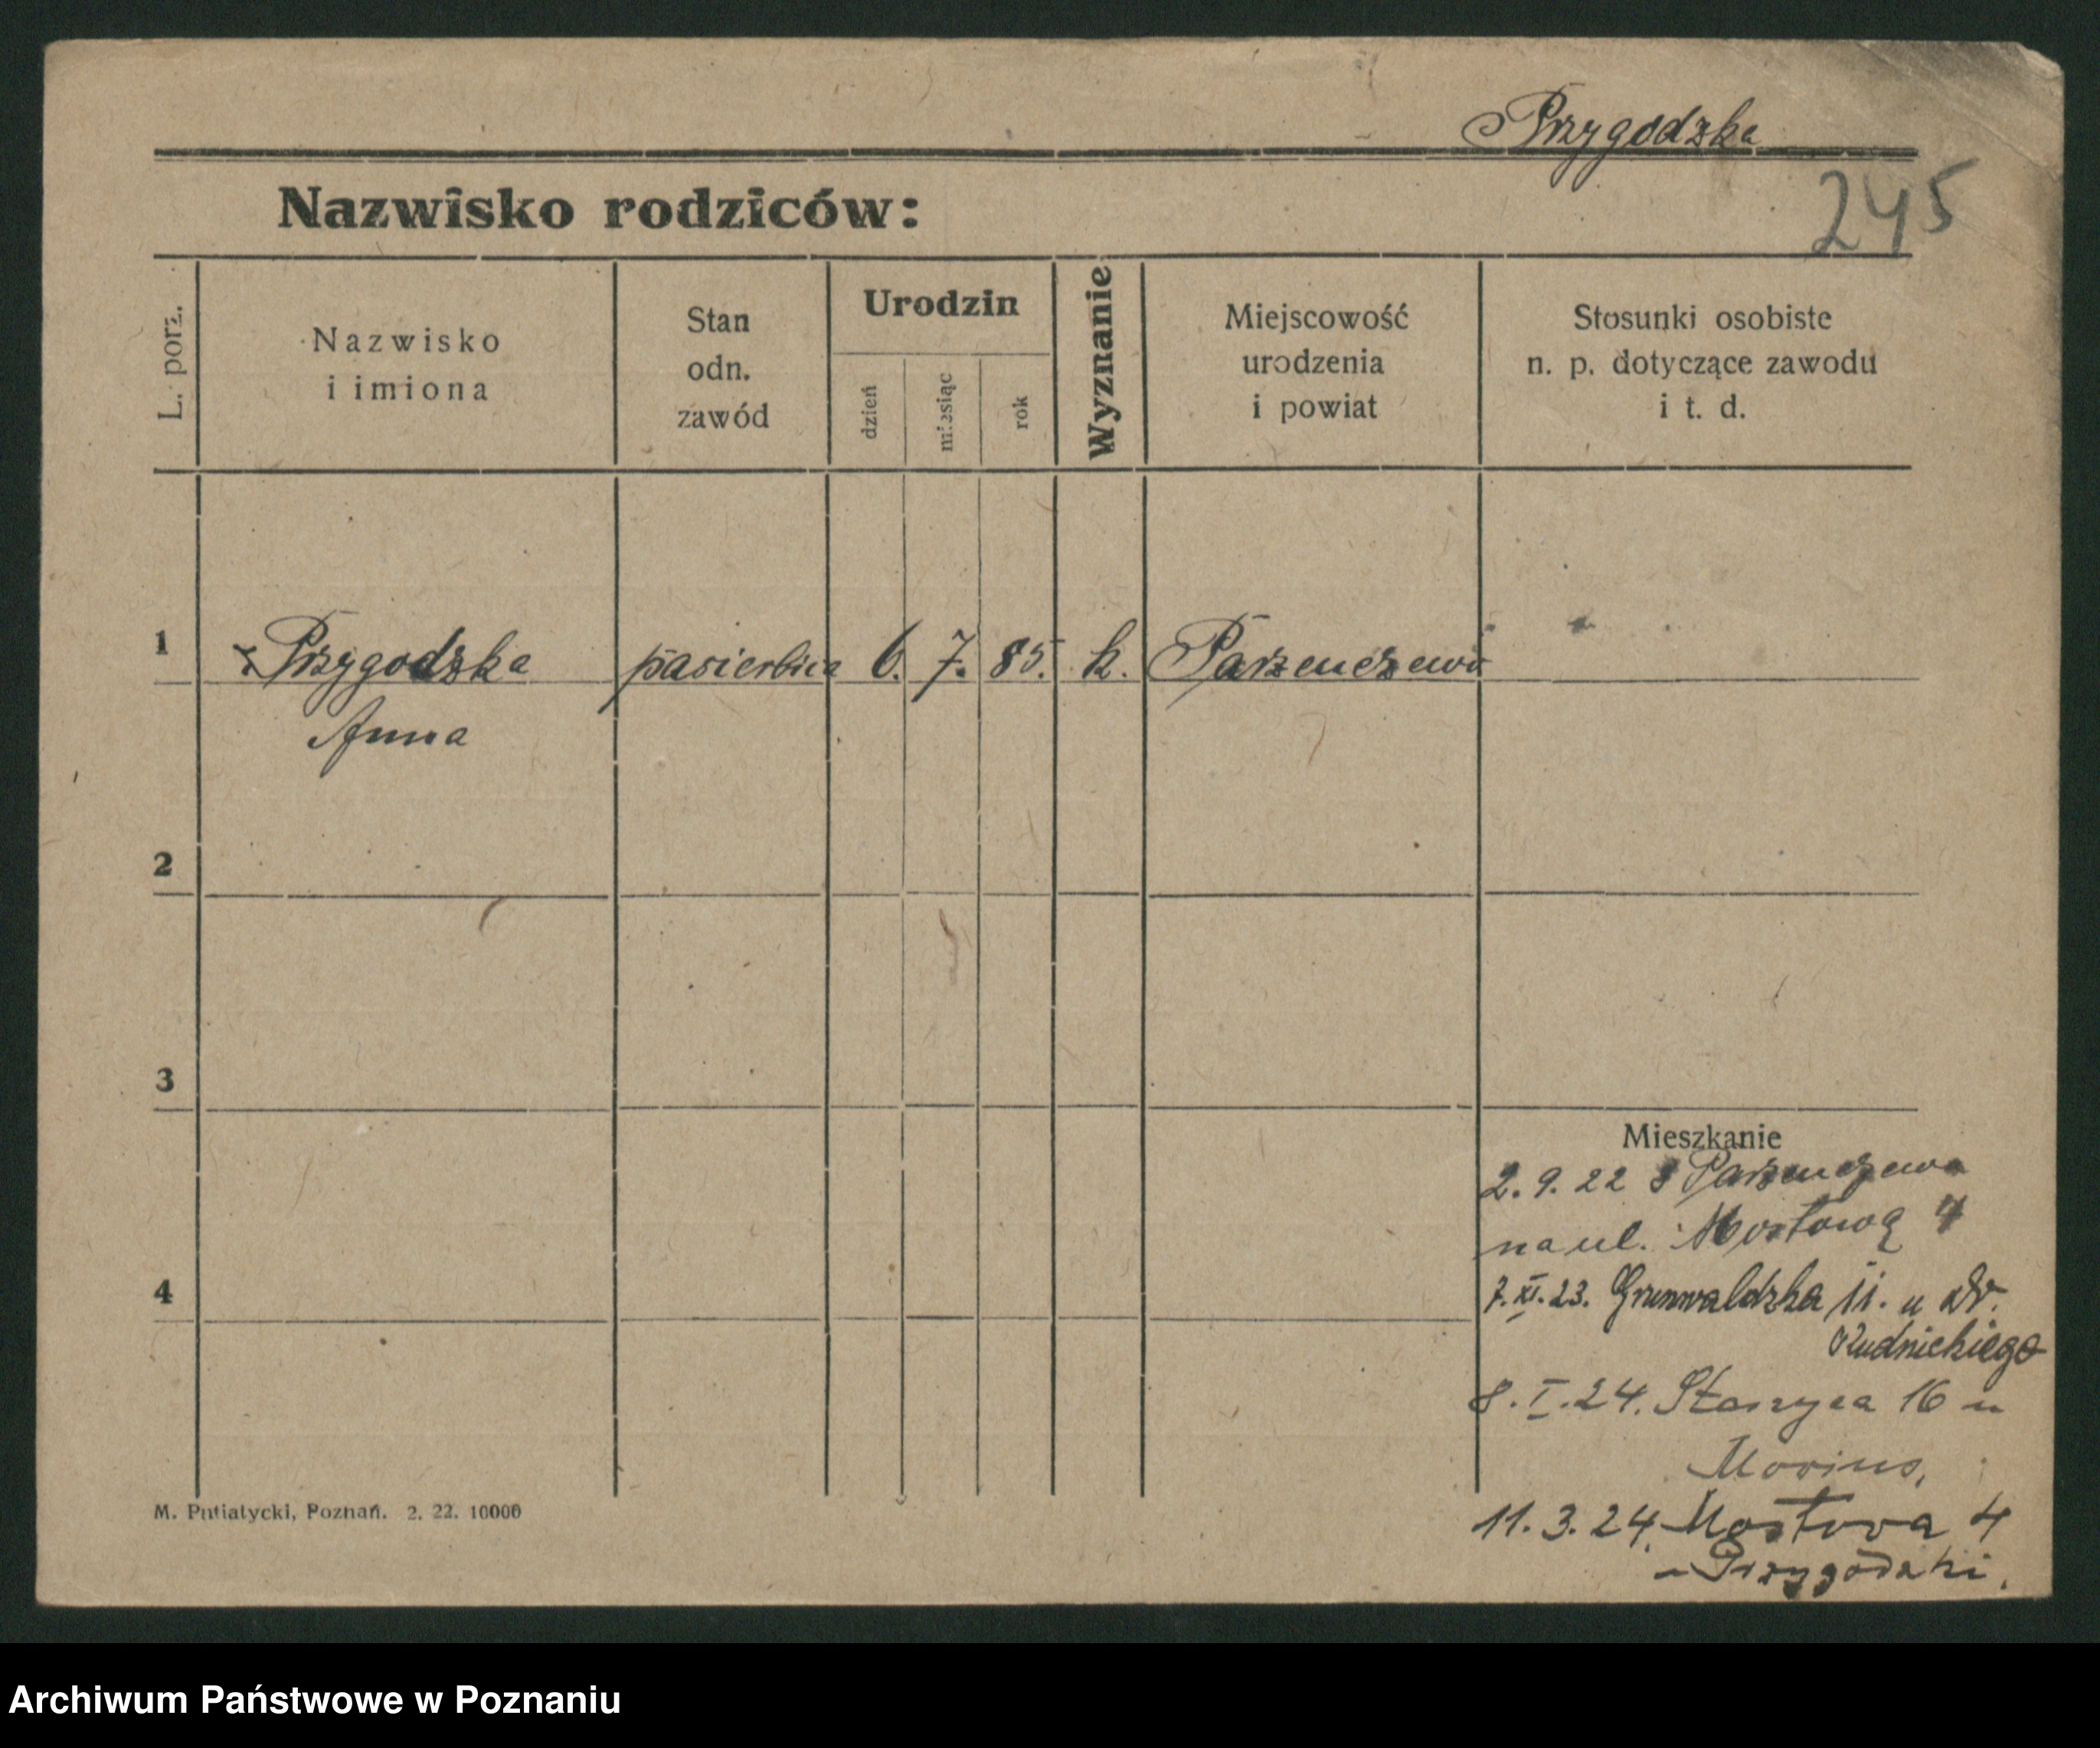 Przygodzka
245
Nazwisko rodziców:
L. porz.
Nazwisko
i imiona
Stan
odn.
zawód
Urodzin
dzień
miesiąc
rok
Wyznanie
Miejscowość
urodzenia
i powiat
Stosunki osobiste
n. p. dotyczące zawodu
i t. d.
1 Przygodzka pasierbica 6. 7. 85. k. Parzenczewo
Anna
2
3
4
Mieszkanie
2. 9. 22 z Parzenczewa
na ul. Mostową 4
7. XI. 23. Grunwaldzka 11. u dr.
Rudnickiego
8. I. 24. Staszyca 16 u
11. 3. 24. Mostowa 4
u Przygodzki.
M. Putiatycki, Poznań. 2. 22. 10000
Archiwum Państwowe w Poznaniu